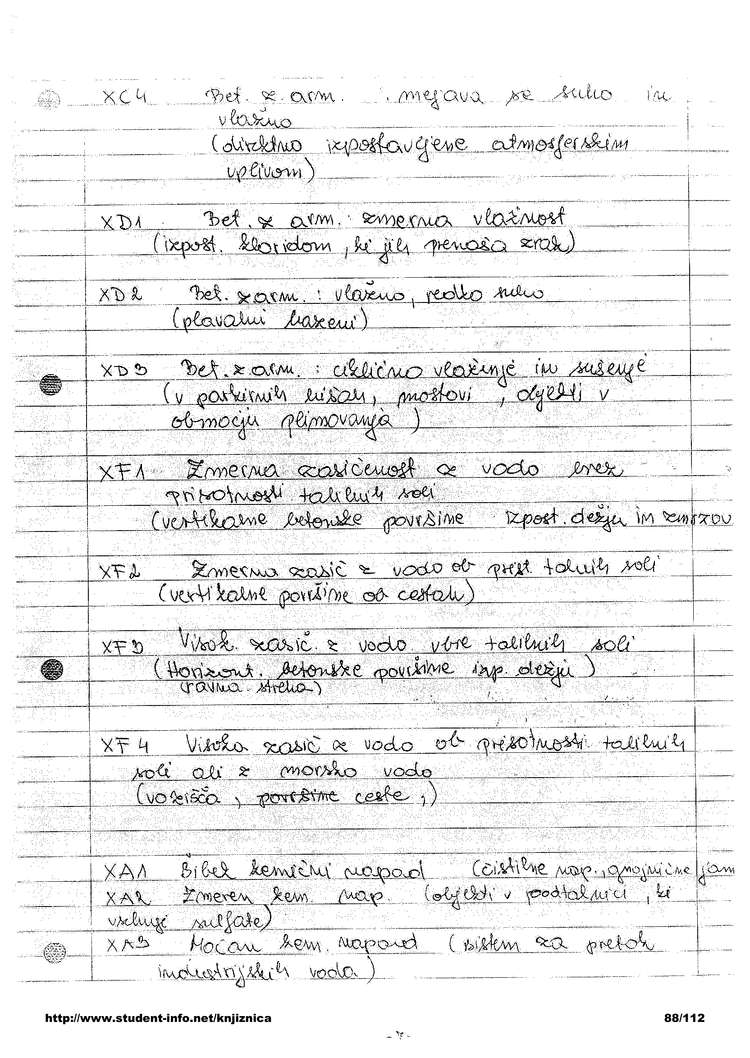 XC4 Bet. z arm. : mejava se suho in
vlažno
(direktno izpostavljene atmosferskim
vplivom)
XD1 Bet. z arm. : zmerna vlažnost
(izpost. kloridom, ki jih prenaša zrak)
XD2 Bet. z arm. : vlažno, redko suho
(plavalni bazeni)
XD3 Bet. z arm. : ciklično vlaženje in sušenje
(v parkirnih hišah, mostovi, objekti v
območju plimovanja)
XF1 Zmerna zasičenost z vodo brez
prisotnosti talilnih soli
(vertikalne betonske površine izpost. dežju in zmrzov
XF2 Zmerna zasič z vodo ob prist talnih soli
(vertikalne površine ob cestah)
XF3 Visok. zasič. z vodo bre talilnih soli
(Horizont. betonske površine izp. dežju)
ravna streha)
XF4 Visoka zasič z vodo ob prisotnosti talilnih
soli ali z morsko vodo
(vozišča, površine ceste,)
XA1 Šibek kemični napad (čistilne nap., gnojnične jam
XA2 Zmeren kem. nap (objekti v podtalnici, ki
vsebuje sulfate)
XA3 Močan kem. napad (sistem za pretok
industrijskih voda)
http://www.student-info.net/knjiznica 88/112